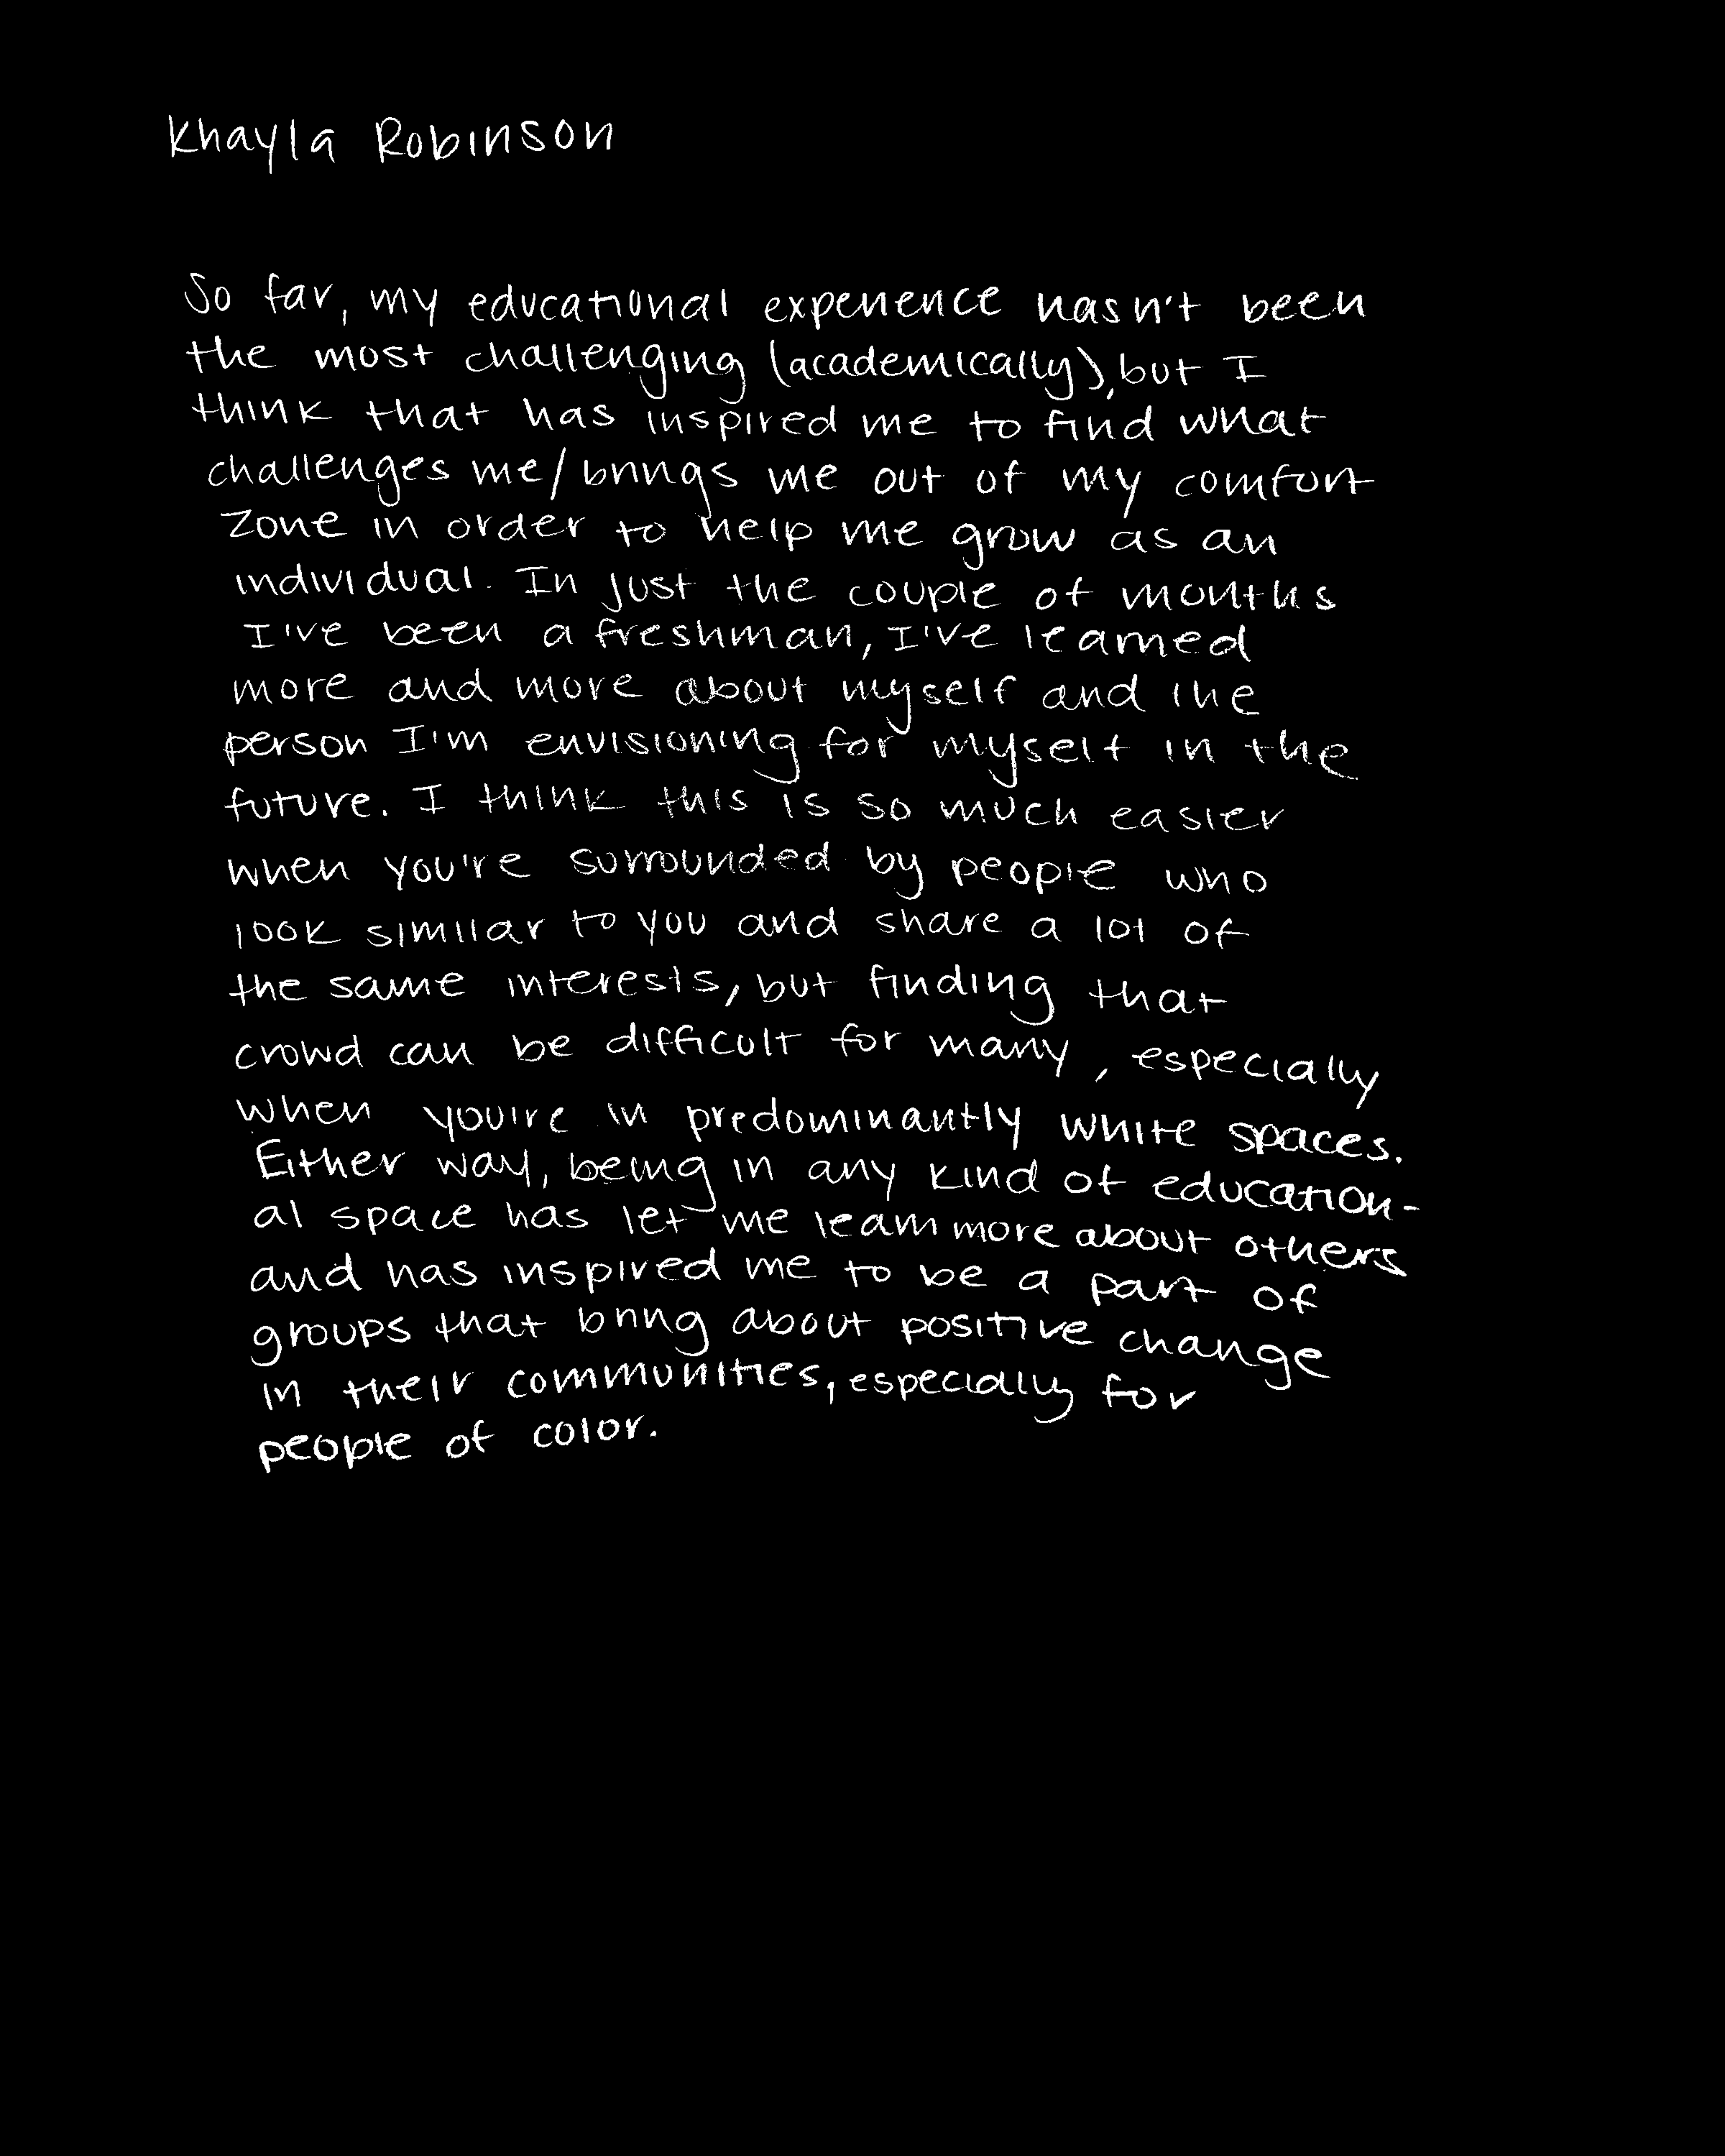 Khayla Robinson
So far, my educational experience hasn't been
the most challenging (academically), but I
think that has inspired me to find what
challenges me/brings me out of my comfort
zone in order to help me grow as an
individual. In just the couple of months
I've been a freshman, I've learned
more and more about myself and the
person I'm envisioning for myself in the
future. I think this is so much easier
when you're surrounded by people who
look similar to you and share a lot of
the same interests, but finding that
crowd can be difficult for many, especially
when you're in predominantly white spaces.
Either way, being in any kind of education-
al space has let me learn more about others
and has inspired me to be a part of
groups that bring about positive change
in their communities, especially for
people of color.